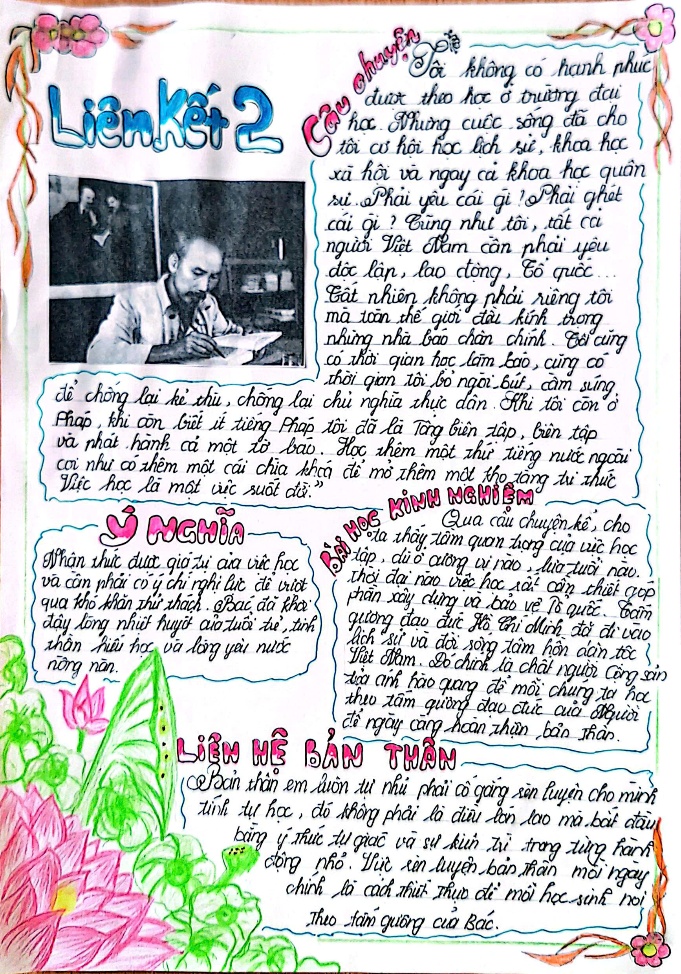 Liên Kết 2
Câu chuyện
Tôi không có hạnh phúc
được theo học ở trường đại
học. Nhưng cuộc sống đã cho
tôi cơ hội học lịch sử, khoa học
xã hội và ngay cả khoa học quân
sự. Phải yêu cái gì! Phải ghét
cái gì? Cũng như tôi, tất cả
người Việt Nam cần phải yêu
độc lập, lao động, Tổ quốc...
Tất nhiên không phải riêng tôi
mà toàn thế giới đều kính trọng
những nhà báo chân chính. Tôi cũng
có thời gian học làm báo, cũng có
thời gian tôi bỏ ngòi bút, cầm súng
để chống lại kẻ thù, chống lại chủ nghĩa thực dân. Khi tôi còn ở
Pháp, khi còn biết ít tiếng Pháp tôi đã là Tổng biên tập, biên tập
và phát hành cả một tờ báo. Học thêm một thứ tiếng nước ngoài
coi như có thêm một cái chìa khoá để mở thêm một kho tàng tri thức
Việc học là một việc suốt đời."
Ý NGHĨA
Nhận thức được giá trị của việc học
và cần phải có ý chí nghị lực để vượt
qua khó khăn thử thách. Bác đã khơi
dậy lòng nhiệt huyết của tuổi trẻ, tinh
thần hiếu học và lòng yêu nước
nồng nàn.
BÀI HỌC KINH NGHIỆM
Qua câu chuyện kể, cho
ta thấy tầm quan trọng của việc học
tập, dù ở cương vị nào, lứa tuổi nào.
Thời đại nào việc học rất cần thiết góp
phần xây dựng và bảo vệ Tổ quốc. Tấm
gương đạo đức Hồ Chí Minh đã đi vào
lịch sử và đời sống tâm hồn dân tộc
Việt Nam. Đó chính là chất người Cộng sản
tỏa ánh hào quang để mỗi chúng ta học
theo tấm gương đạo đức của Người
để ngày càng hoàn thiện bản thân.
LIÊN HỆ BẢN THÂN
Bản thân em luôn tự nhủ phải cố gắng rèn luyện cho mình
tính tự học, đó không phải là điều lớn lao mà bắt đầu
bằng ý thức tự giác và sự kiên trì trong từng hành
động nhỏ. Việc rèn luyện bản thân mỗi ngày
chính là cách thiết thực để mỗi học sinh noi
theo tấm gương của Bác.